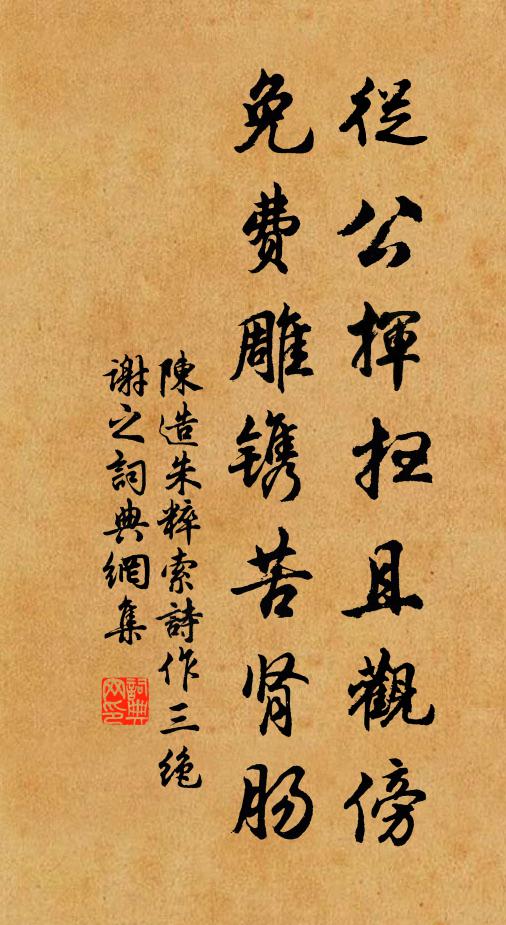 從公揮扫且觀傍
免费雕镌苦肾肠
陳造朱粹索詩作三绝
谢之詞典網集
詞典网印